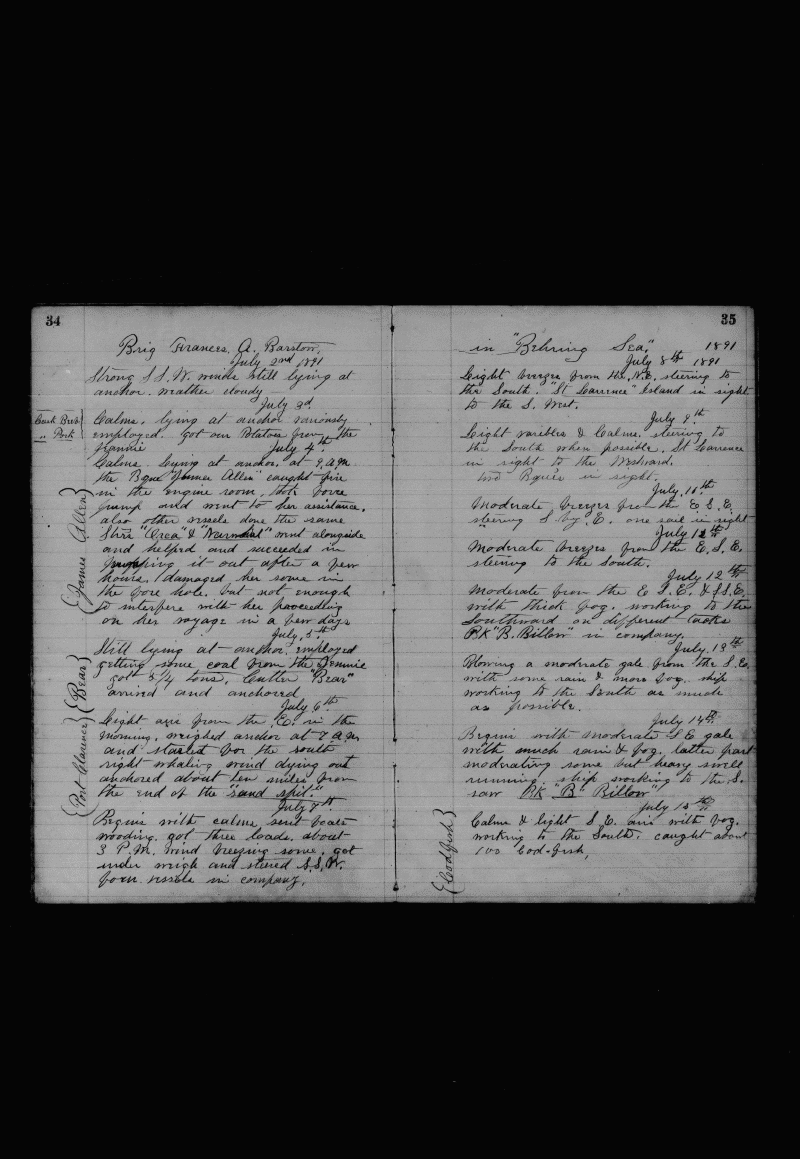 34
Brig Frances A. Barstow,
July 2nd 1891
Strong S.S.W. winds still lying at
anchor. weather cloudy
July 3d
Calms, lying at anchor variously
employed. Got our Potatoes from the
Jennie
July 4th
Calms lying at anchor, at 9 a.m
the Bque "James Allen" caught fire
in the engine room, took force
pump and went to her assistance,
also other vessels done the same
Strs "Orca" & "Narwhal" went alongside
and helped and succeeded in
pumping it out after a few
hours, damaged her some in
the fore hole, but not enough
to interfere with her proceeding
on her voyage in a few days
{James Allen}
July 5th
Still lying at anchor, employed
getting some coal from the Jennie
got 5 1/4 tons, Cutter "Bear"
arrived and anchored
{Bear}
July 6th
Light airs from the E. in the
morning, weighed anchor at 7 a.m
and started for the south
right whaling wind dying out
anchored about ten miles from
the end of the "sand spit."
{Port Clarence}
July 7th
Begins with calms, sent boats
wooding. got three loads, about
3 P.M. wind breezing some, got
under weigh and steered S.S.W.
four vessels in company,
35
in "Behring Sea," 1891
July 8th 1891
Light breezes from the N.E. steering to
the South. "St Lawrence" Island in sight
to the S. West.
July 9th
Light varibles & Calms. steering to
the South when possible, St Lawrence
in sight to the Westward.
two Bques in sight.
July 10th
Moderate breezes from the E S.E.
steering S. by. E. one sail in sight
July 11th
Moderate breezes from the E.S.E.
steering to the South.
July 12th
Moderate from the E S.E. & S.E.
with thick fog. working to the
Southward on different tacks
Bk "B. Billow" in company.
July 13th
Blowing a moderate gale from the S.E.
with some rain & more fog. ship
working to the South as much
as possible.
July 14th
Begins with moderate S.E gale
with much rain & fog. latter part
moderating some but heavy swell
running, ship working to the S.
saw Bk "B" Billow"
July 15th
Calms & light S.E. airs with fog.
working to the South. caught about
100 Cod-fish,
{Codfish}